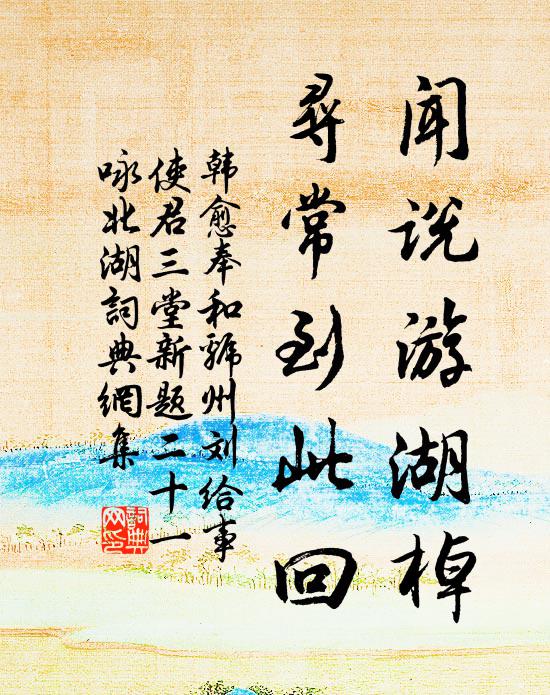 闻说游湖棹
寻常到此回
韩愈奉和虢州刘给事
使君三堂新题二十一
咏北湖詞典網集
詞典网印